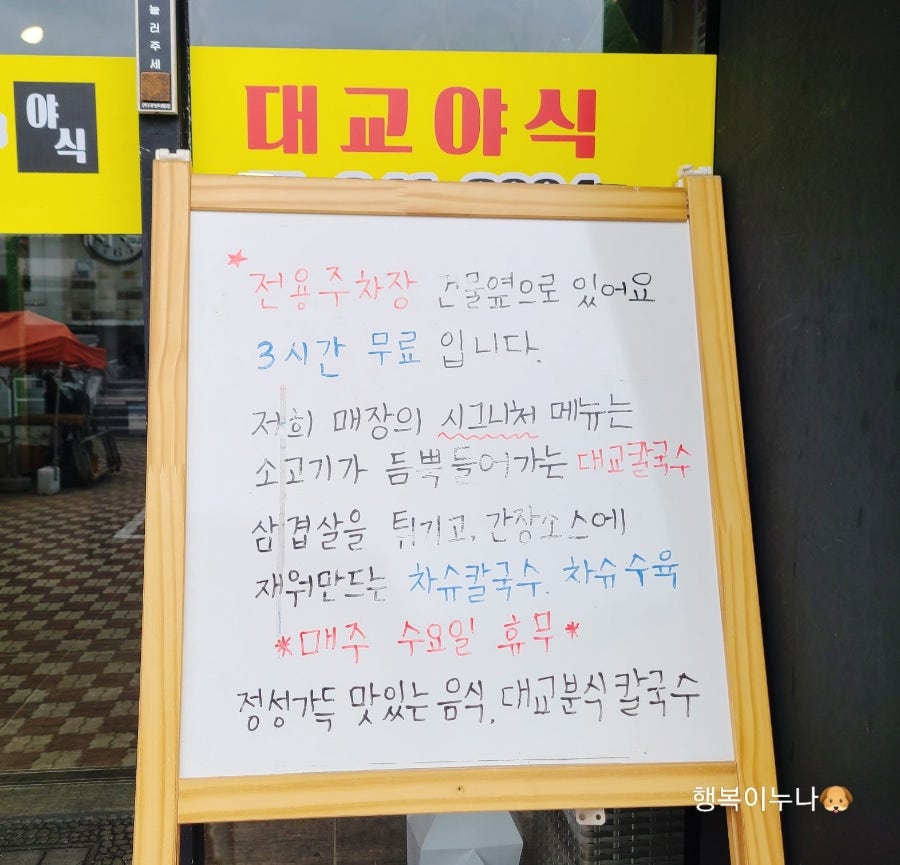 눌러주세
야식
대교야식
★전용주차장 건물옆으로 있어요
3시간 무료 입니다.
저희 매장의 시그니처 메뉴는
소고기가 듬뿍 들어가는 대교칼국수
삼겹살을 튀기고, 간장소스에
재워만드는 차슈칼국수. 차슈수육
*매주 수요일 휴무*
정성가득 맛있는 음식, 대교분식칼국수
행복이누나🐶